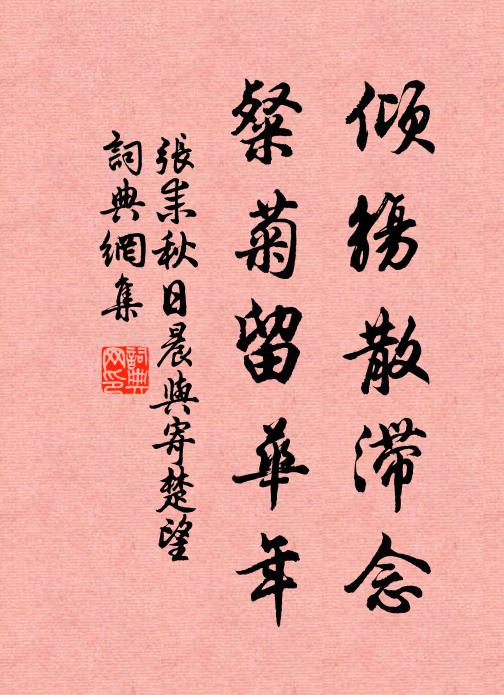 傾觴散滯念
粲菊留華年
張耒秋日晨興寄楚望
詞典網集
詞典
网印